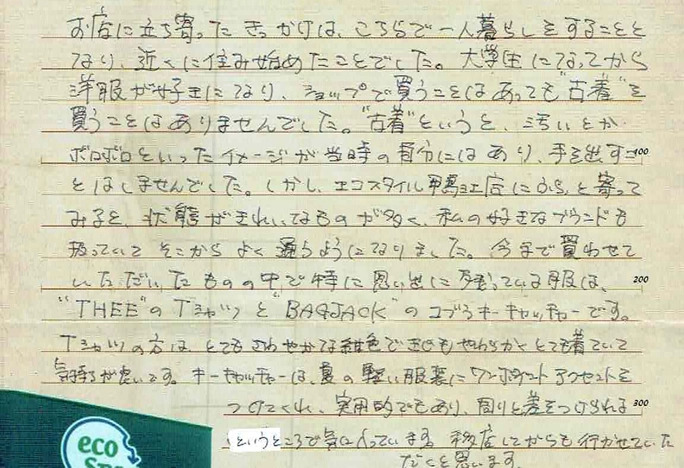 お店に立ち寄ったきっかけは、こちらで一人暮らしをすることと
なり、近くに住み始めたことでした。大学生になってから
洋服が好きになり、ショップで買うことはあっても"古着"を
買うことはありませんでした。"古着"というと、汚いとか
ボロボロといったイメージが当時の自分にはあり、手を出すこ 100
とはしませんでした。しかし、エコスタイル鴨江店にふらっと寄って
みると、状態がきれいなものが多く、私の好きなブランドも
扱っていてそこからよく通うようになりました。今まで買わせて
いただいたものの中で特に思い出に残っている服は、 200
"THEE"のTシャツと"BAGJACK"のコブラキーキャッチャーです。
Tシャツの方は、とてもさわやかな緑色で生地もやわらかくとても着ていて
気持ちが良いです。キーキャッチャーは、夏の軽い服装にワンポイントアクセントを
つけてくれ、実用的でもあり、周りと差をつけられる 300
というところで気に入っています。移店してからも行かせていた
だくと思います。
eco